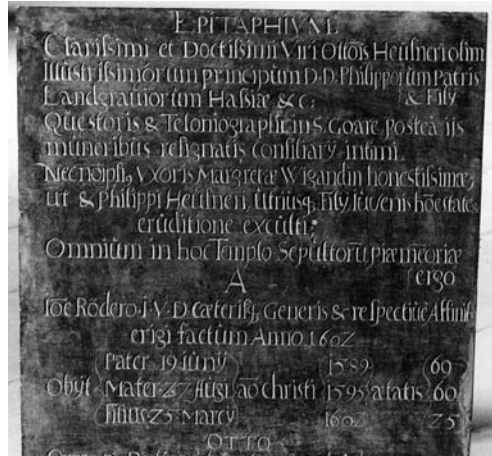 EPITAPHIVM
Clarissimi et Doctissimi Viri Ottōis Heusneri olim
Illustrissimorum principum D·D·Philipporum Patris
Landgrauiorum Hassiæ &c: & Filÿ
Questoris & Teloniographi in S. Goare, postea iis
muneribus resignatis consiliarÿ intimi.
Necnō ipsi9 Vxoris Margretæ Wigandin honestissimæ;
ut & Philippi Heusneri, utriusq3 Filÿ iuvenis
eruditione exculti;
Omnium in hoc Templo Sepultorū, piæ mēoriæ
A ergo
Röder9 I·V·D cæterisq3 Generis & respectiuè Affinis
erigi factum Anno 1602
Pater 19 iunÿ 1589 69
Obÿt Mater 27 Augi āo christi 1595 ætatis 60
filius 25 Marcÿ 1602 25
OTTO